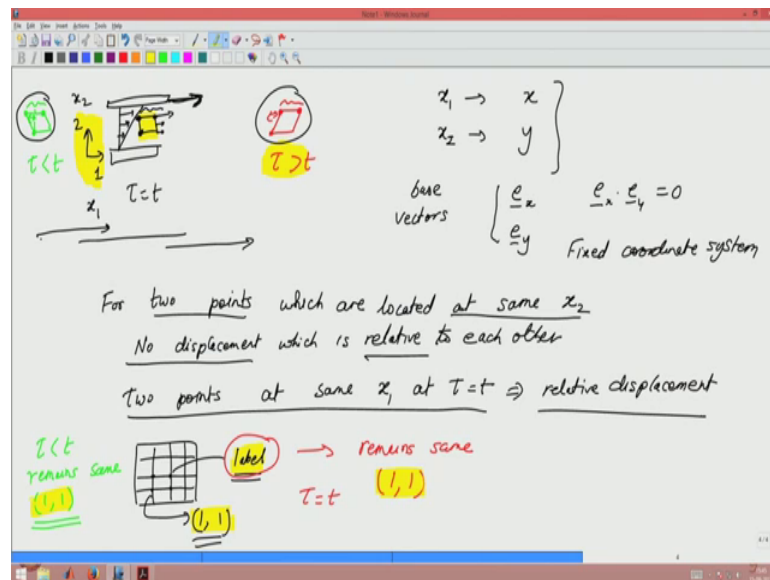 Note1 - Windows Journal
File Edit View Insert Actions Tools Help
Page Width
B I
x₂
2
1
x₁
τ < t
τ = t
τ > t
x₁ → x
x₂ → y
base vectors
e_x
e_y
e_x · e_y = 0
Fixed coordinate system
For two points which are located at same x₂
No displacement which is relative to each other
Two points at same x₁ at τ = t ⇒ relative displacement
τ < t
remains same
(1,1)
label → remains same
(1,1)
τ = t
(1,1)
4